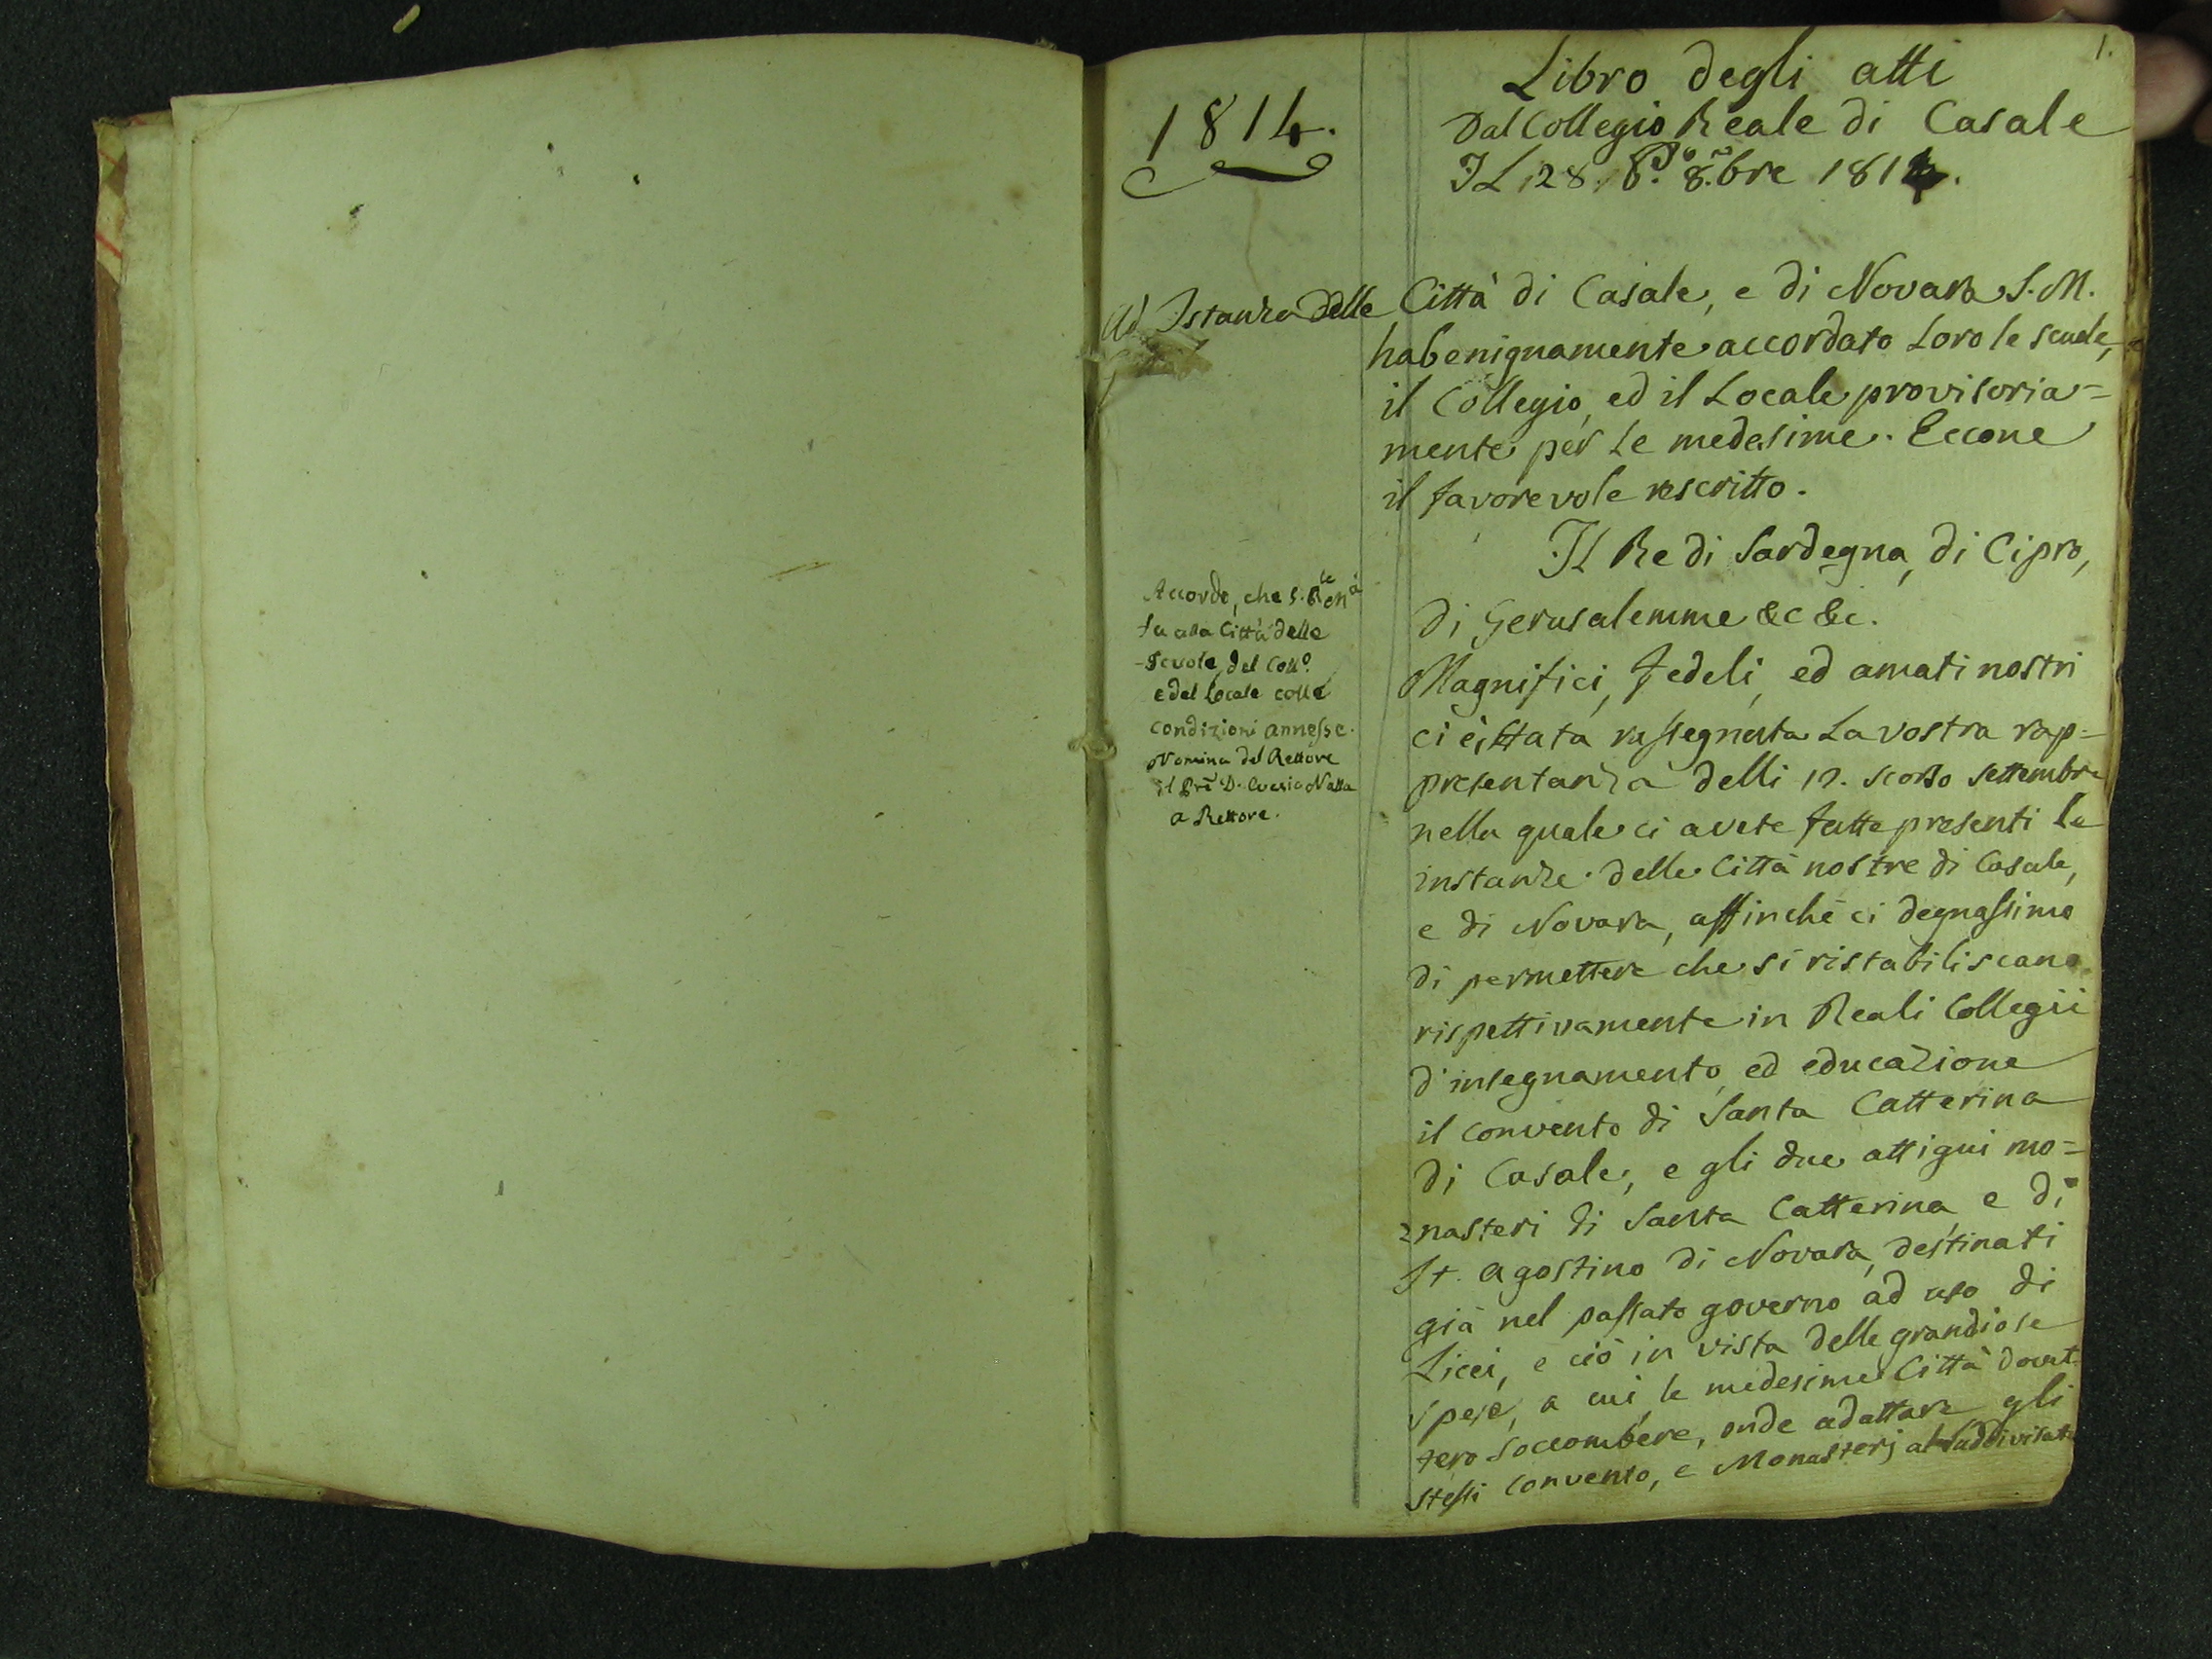 1.
1814.
Libro degli atti
Dal Collegio Reale di Casale
Il 28. 8.bre 1814.
Ad Istanza delle Città di Casale, e di Novara S. M.
ha benignamente accordato Loro le scuole,
il Collegio, ed il Locale provisoria=
mente per le medesime. Eccone
il favorevole rescritto.
Il Re di Sardegna, di Cipro,
di Gerusalemme &c &c.
Magnifici, fedeli, ed amati nostri
ci è stata rassegnata La vostra rap=
presentanza delli 12. scorso settembre
nella quale ci avete fatte presenti le
instanze delle Città nostre di Casale,
e di Novara, affinchè ci degnassimo
di permettere che si ristabiliscano
rispettivamente in Reali Collegii
d'insegnamento, ed educazione
il convento di Santa Catterina
di Casale, e gli due attigui mo=
nasteri di Santa Catterina, e di
St. Agostino di Novara, destinati
già nel passato governo ad uso di
Licei, e ciò in vista delle grandiose
spese, a cui le medesime Città dovet
tero soccombere, onde adattare gli
stessi convento, e Monasterj al suddivisato
Accordo, che S. R.le M.à
fa alla Città delle
Scuole, del Coll.o
e del Locale colle
condizioni annesse.
Nomina del Rettore
il D. Natta
a Rettore.